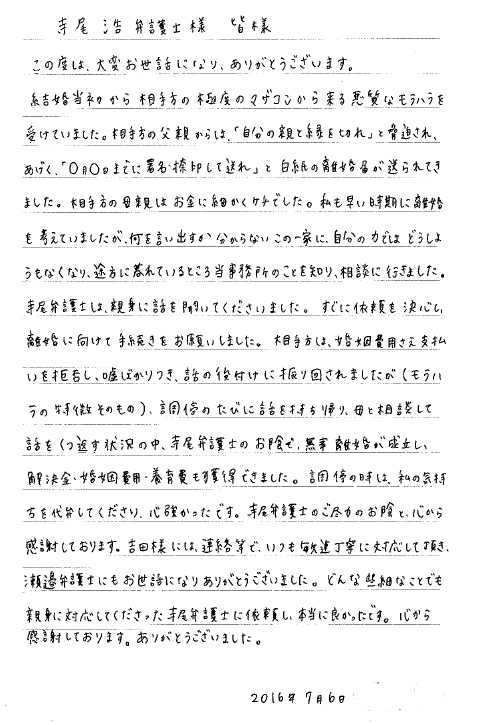 寺尾 浩 弁護士様 皆様
この度は、大変お世話になり、ありがとうございます。
結婚当初から相手方の極度のマザコンから来る悪質なモラハラを
受けていました。相手方の父親からは、「自分の親と縁を切れ」と脅迫され、
あげく、「○月○日までに署名・捺印して送れ」と白紙の離婚届が送られてき
ました。相手方の母親はお金に細かくケチでした。私も早い時期に離婚
を考えていましたが、何を言い出すか分からないこの一家に、自分の力ではどうしよ
うもなくなり、途方に暮れているところ当事務所のことを知り、相談に行きました。
寺尾弁護士は、親身に話を聞いてくださいました。すぐに依頼を決心し、
離婚に向けて手続きをお願いしました。相手方は、婚姻費用さえ支払
いを拒否し、嘘ばかりつき、話の後付けに振り回されましたが（モラハ
ラの特徴そのもの）、調停のたびに話を持ち帰り、母と相談して
話をくつ返す状況の中、寺尾弁護士のお陰で、無事離婚が成立し、
解決金・婚姻費用・養育費も獲得できました。調停の時は、私の気持
ちを代弁してくださり、心強かったです。寺尾弁護士のご尽力のお陰と、心から
感謝しております。吉田様には、連絡等で、いつも敏速丁寧に対応して頂き、
瀬邉弁護士にもお世話になりありがとうございました。どんな些細なことでも
親身に対応してくださった寺尾弁護士に依頼し、本当に良かったです。心から
感謝しております。ありがとうございました。
2016年 7月6日